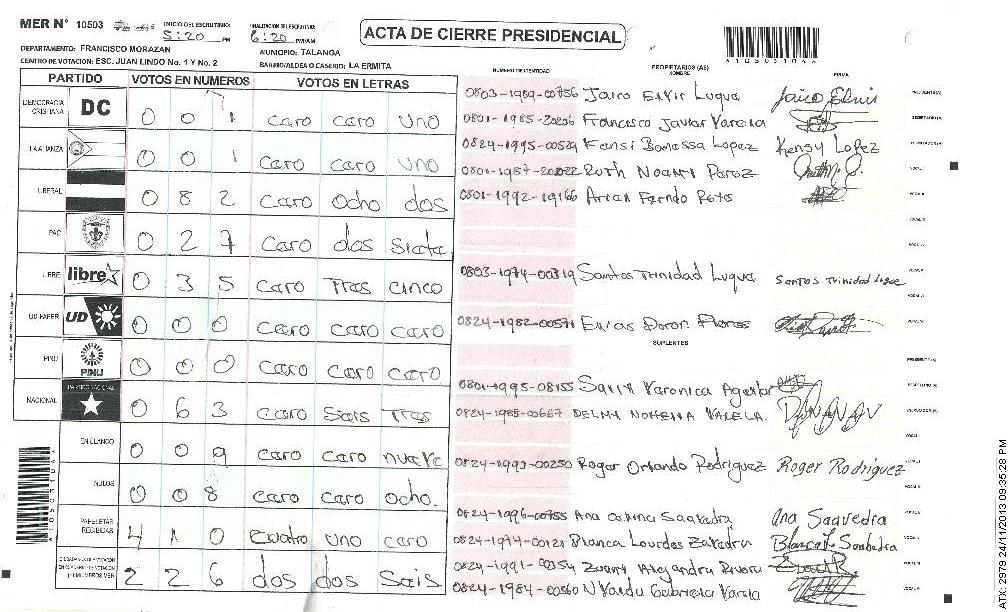 MER N° 10503
INICIO DEL ESCRUTINIO: 5:20 PM
FINALIZACION DEL ESCRUTINIO: 6:20 PM/AM
ACTA DE CIERRE PRESIDENCIAL
A10503104A
DEPARTAMENTO: FRANCISCO MORAZAN
MUNICIPIO: TALANGA
CENTRO DE VOTACION: ESC. JUAN LINDO No. 1 Y No. 2
BARRIO/ALDEA O CASERIO: LA ERMITA
PARTIDO VOTOS EN NUMEROS VOTOS EN LETRAS
DEMOCRACIA CRISTIANA DC 0 0 1 caro caro uno
LA ALIANZA 0 0 1 caro caro uno
LIBERAL 0 8 2 caro ocho dos
PAC 0 2 7 caro dos siata
LIBRE libre 0 3 5 caro Tras cinco
UD-FAPER UD 0 0 0 caro caro caro
PINU PINU 0 0 0 caro caro caro
NACIONAL PARTIDO NACIONAL 0 6 3 caro sais Tras
EN BLANCO 0 0 9 caro caro nuava
NULOS 0 0 8 caro caro ocho.
PAPELETAS RECIBIDAS 4 1 0 cuatro uno caro
2 2 6 dos dos sais
NUMERO DE IDENTIDAD PROPIETARIOS (AS) NOMBRE FIRMA
0803-1989-00756 Jairo Elvir Luque
0801-1985-20206 Francisco Javiar Varela
0824-1995-00529 Kensi Banassa Lopez Kensy Lopez
0801-1987-20022 Ruth Noami Paraz
0801-1992-19166
0803-1974-00319 Santos Trinidad Luque Santos Trinidad Luque
0824-1982-00571 Flores
SUPLENTES
0801-1995-08155 Varonica Aguilar
0824-1985-00667 DELMY VARELA.
0824-1993-00250 Rogar Orlando Rodriguez Roger Rodriguez
0824-1996-00755 Ana Saavadra Ana Saavedra
0824-1974-00121 Blanca Lourdes Zavadra
0824-1991-00354 Alejandra Rivera
0824-1984-00560 Gabriela Varela
A10503104A
ATX: 2979 24/11/2013 09:35:28 PM